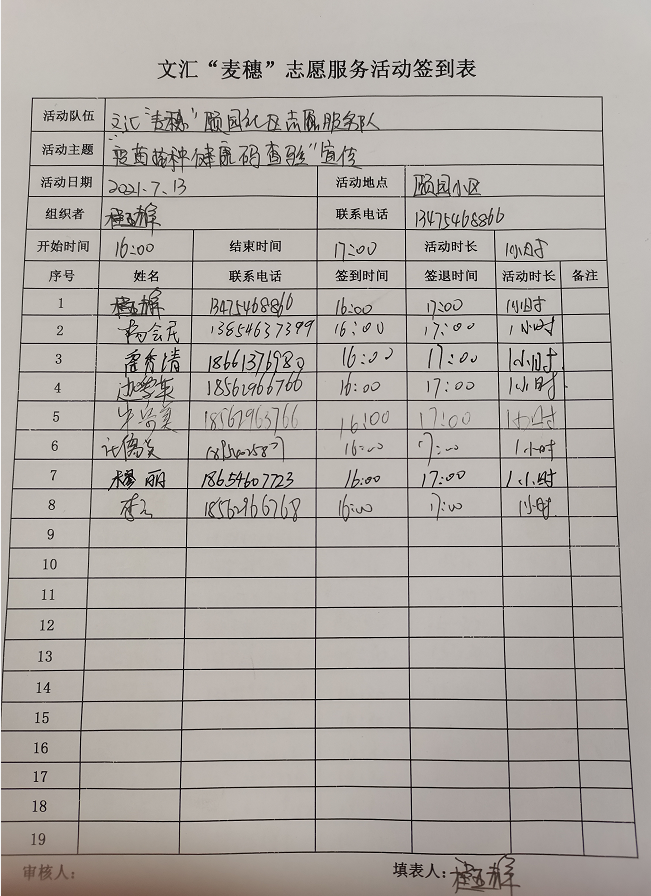 文汇“麦穗”志愿服务活动签到表
活动队伍 文汇“麦穗”颐园社区志愿服务队
活动主题 “疫苗接种健康码查验”宣传
活动日期 2021.7.13 活动地点 颐园小区
组织者 联系电话 13475468866
开始时间 16:00 结束时间 17:00 活动时长 1小时
序号 姓名 联系电话 签到时间 签退时间 活动时长 备注
1 13475468866 16:00 17:00 1小时
2 杨会民 13854637399 16:00 17:00 1小时
3 18661376980 16:00 17:00 1小时
4 边学东 18562966766 16:00 17:00 1小时
5 18562963766 16:00 17:00 1小时
6 16:00 17:00 1小时
7 杨丽 18654607723 16:00 17:00 1小时
8 18562966768 16:00 17:00 1小时
9
10
11
12
13
14
15
16
17
18
19
审核人： 填表人：